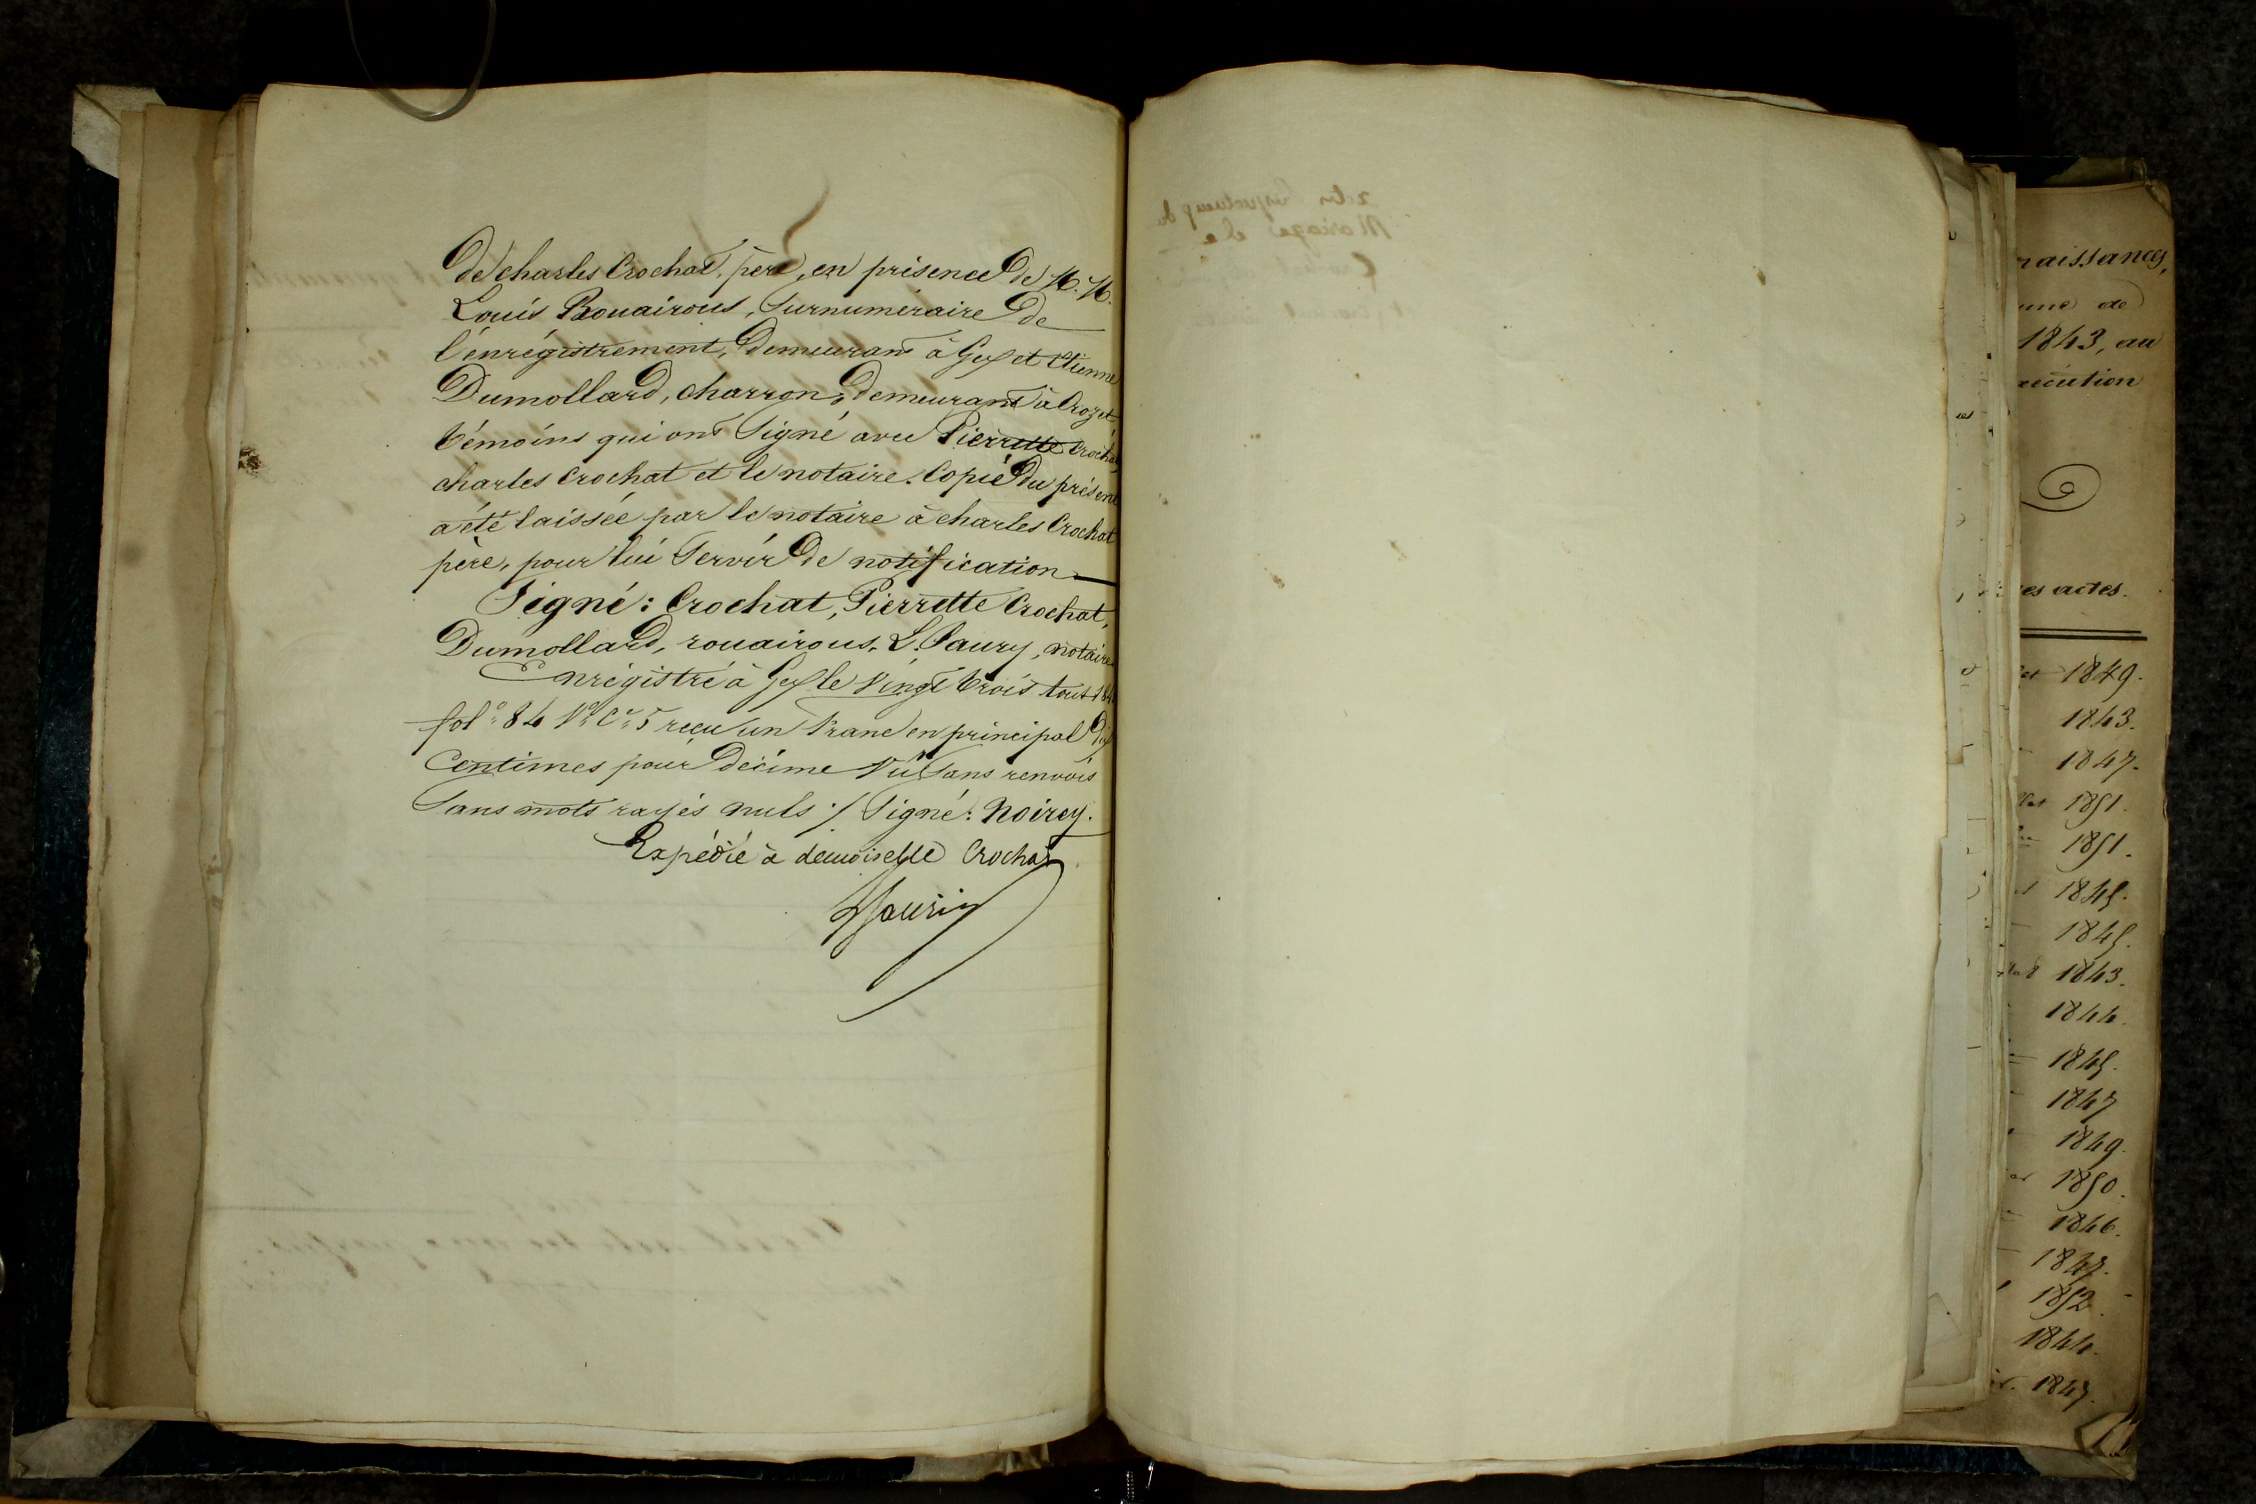 de charles Crochat, père, en présence de M. M.
Louis Rouairous, Surnuméraire de
l'énrégistrement, demeurant à Gex et Etienne
Dumollard, charron, demeurant à Crozet,
témoins qui ont Signé avec Pierrette Crochat,
charles Crochat et le notaire. Copie du présent
a été laissée par le notaire à charles Crochat
père, pour lui Servir de notification
Signé: Crochat, Pierrette Crochat,
Dumollard, rouairous, L. Saury, notaire
Enrégistré à Gex le vingt trois
fol° 84 V° Ce 5 reçu un franc en principal dix
Centimes pour décime Vu Sans renvois
Sans mots rayés nuls ./. Signé: Noirey.
Expédié à demoiselle Crochat
Mariage de
naissances,
une de
1843, au
exécution
es actes.
1849.
1843.
1847.
1851.
1851.
1845.
1845.
1843.
1844.
1845.
1847
1849.
1850.
1846.
1847.
1852.
1844.
1847.